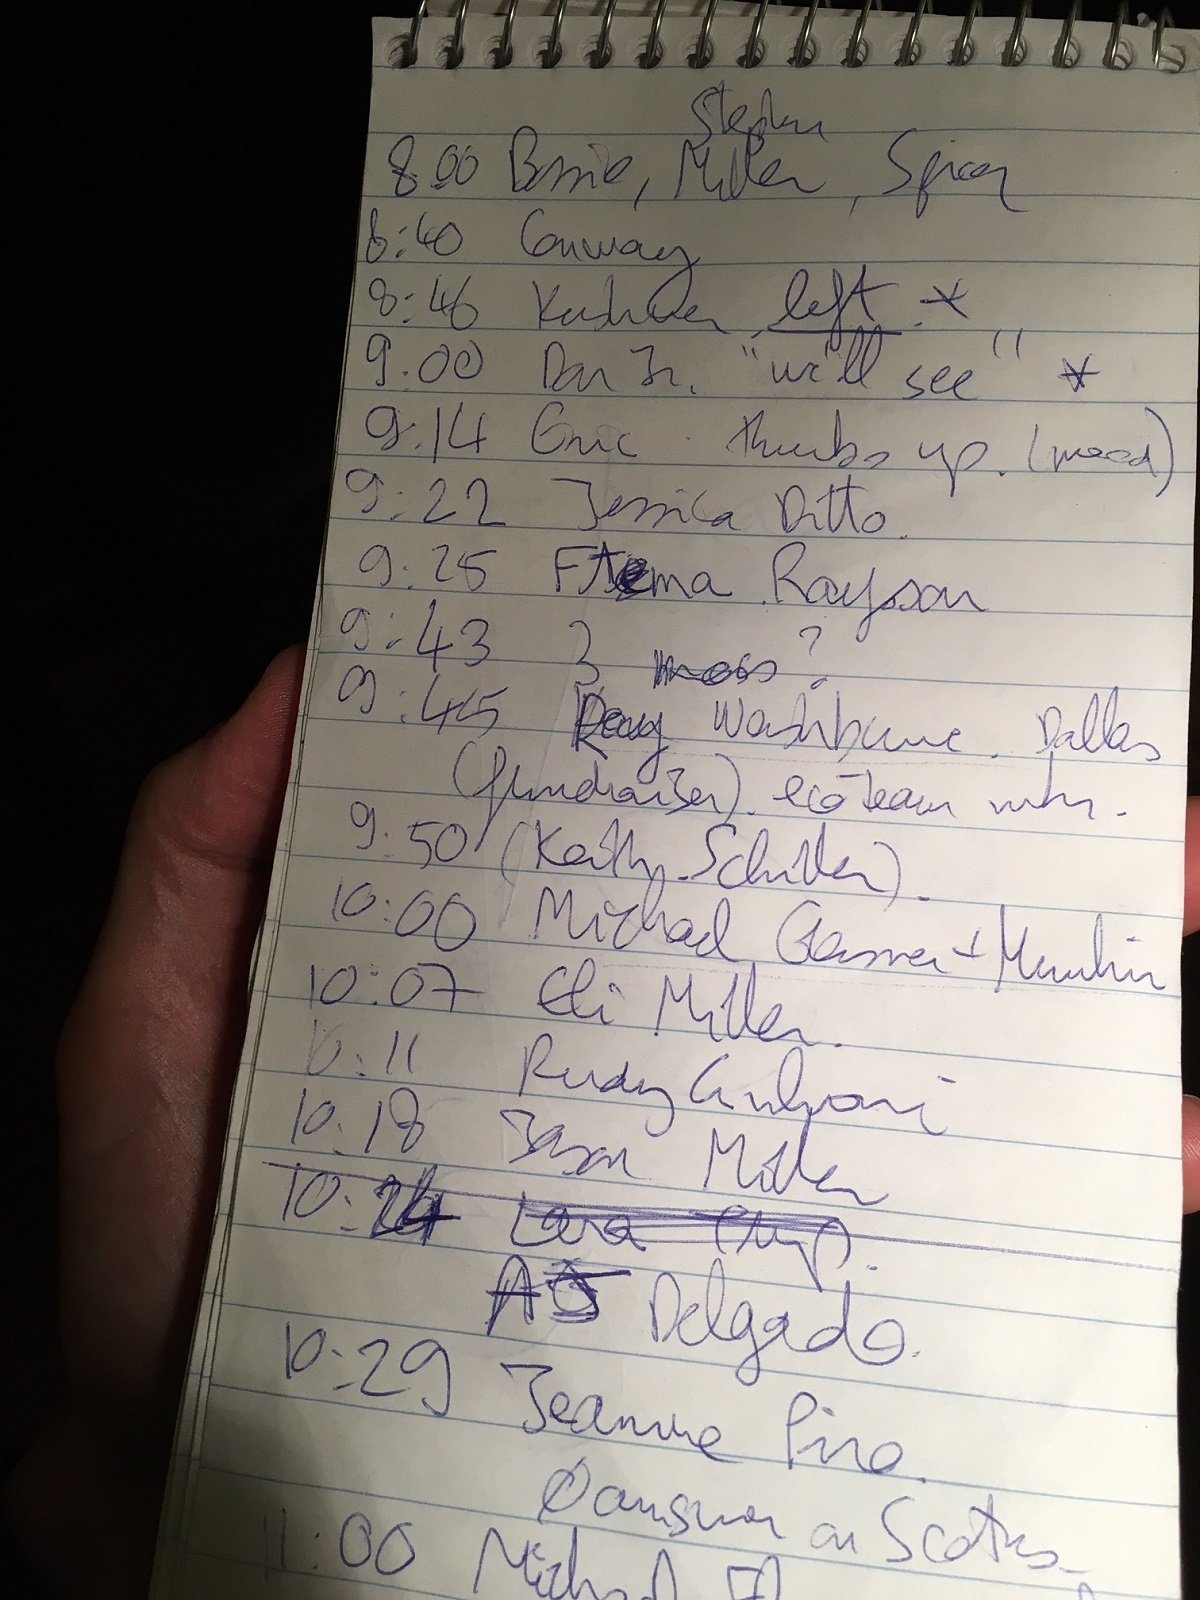 Stephen
8.00 Bossie, Miller, Spicer
8:40 Conway
8:46 Kushner left *
9.00 Don Jr. "we'll see" *
9:14 Eric thumbs up. (mood)
9:22 Jessica Ditto.
9:25 Rayson
9:43 3 ?
9:45 Washburne. Dallas
(fundraiser). eco team
9:50 (Keith Schiller).
10:00 Michael +
10:07 Eli Miller.
10:11 Rudy Giuliani
10.18 Jason Miller
10:24 Lara
AJ Delgado.
10:29 Jeanine Piro.
on Scotus
11:00 Michael